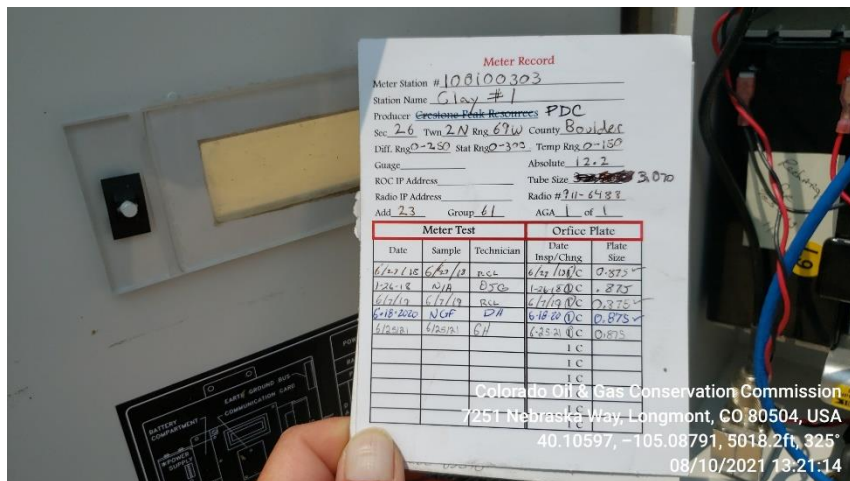 Meter Record
Meter Station # 108100303
Station Name Clay #1
Producer Crestone Peak Resources PDC
Sec 26 Twn 2N Rng 69W County Boulder
Diff. Rng 0-250 Stat Rng Temp Rng 0-150
Guage Absolute 12.2
ROC IP Address Tube Size 3,070
Radio IP Address Radio # 911-6488
Add 23 Group 61 AGA 1 of 1
Meter Test Orfice Plate
Date Sample Technician Date Insp/Chng Plate Size
RCL I C 0.875
1-26-18 N/A DJG 1-26-18 I C .875
6/7/19 6/7/19 RCL 6/7/19 I C 0.875
6-18-2020 NGF DH 6-18-20 I C 0.875
6/25/21 6/25/21 GH 6-25-21 I C 0.875
I C
I C
I C
EARTH GROUND BUS
COMMUNICATION CARD
BATTERY COMPARTMENT
POWER SUPPLY
Colorado Oil & Gas Conservation Commission
7251 Nebraska Way, Longmont, CO 80504, USA
40.10597, -105.08791, 5018.2ft, 325°
08/10/2021 13:21:14